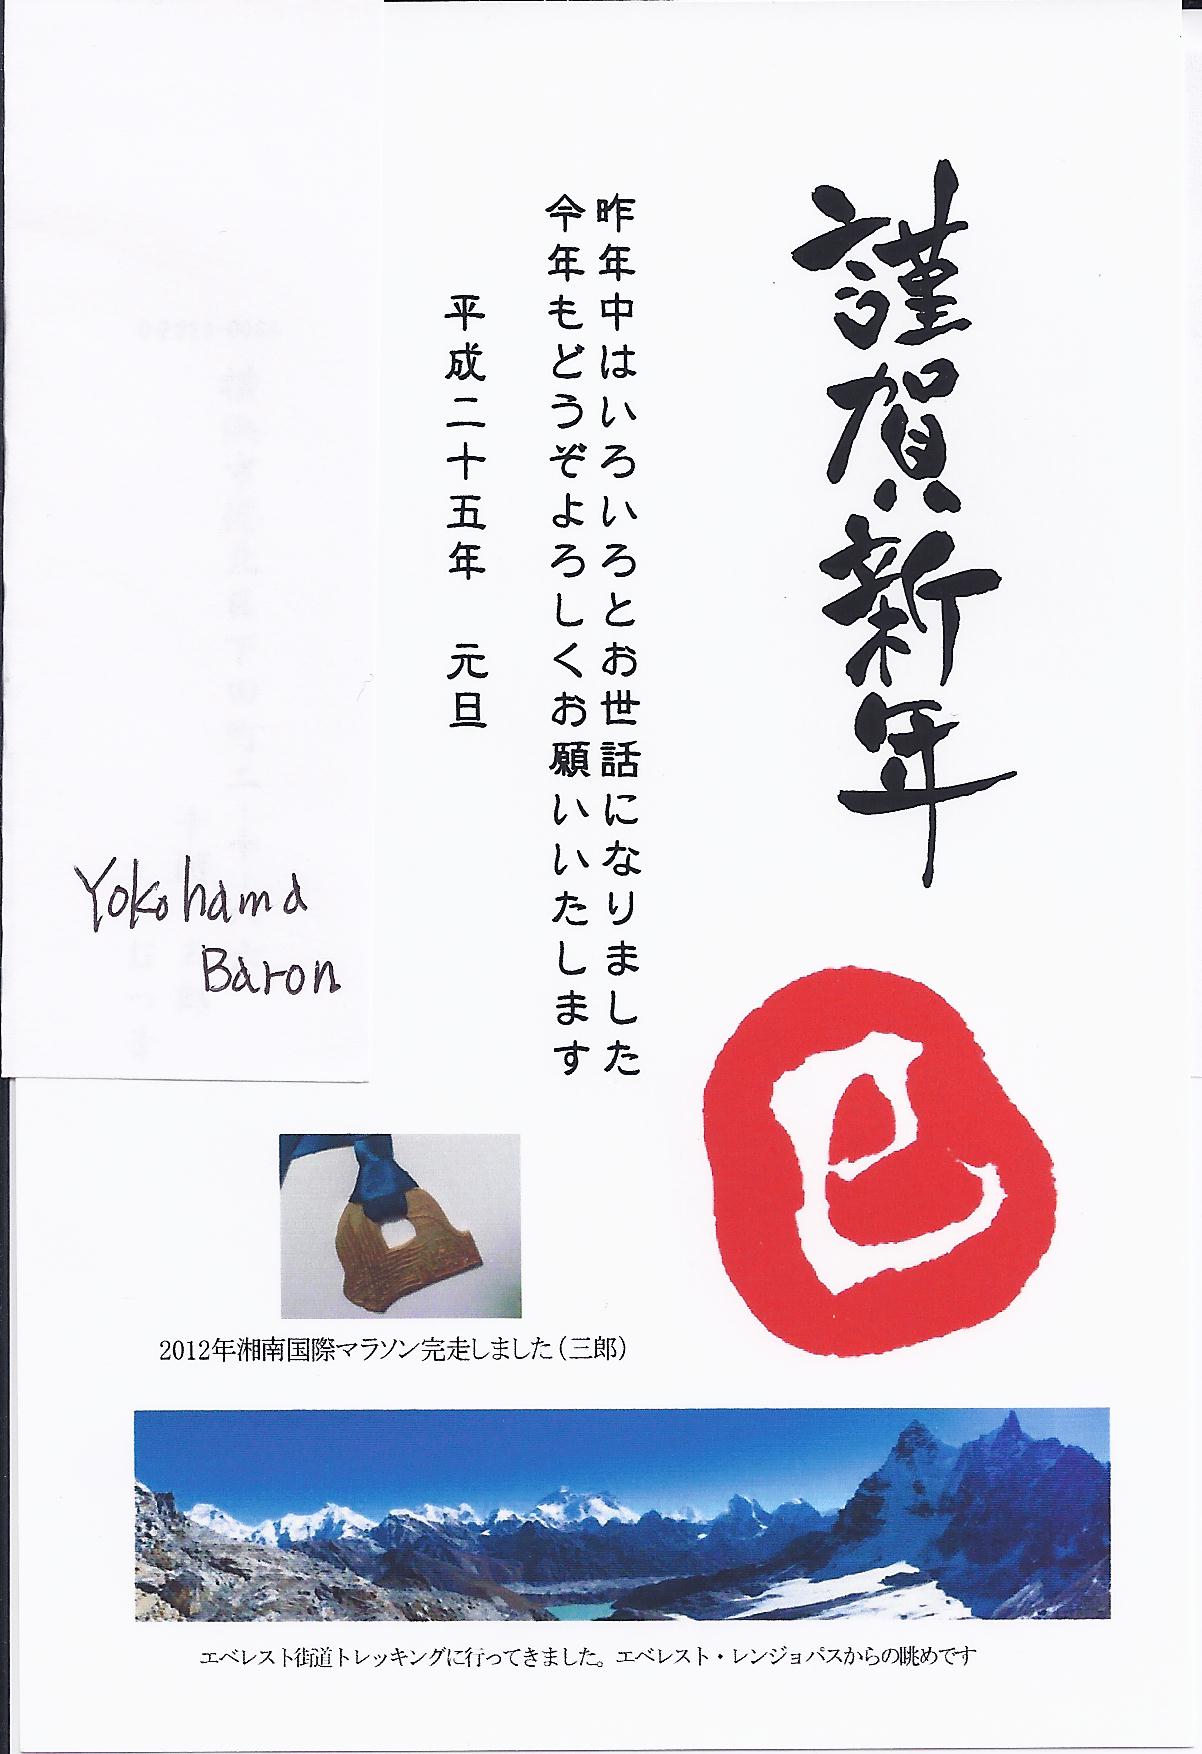 謹賀新年
昨年中はいろいろとお世話になりました
今年もどうぞよろしくお願いいたします
平成二十五年 元旦
Yokohama
Baron
巳
2012年湘南国際マラソン完走しました(三郎)
エベレスト街道トレッキングに行ってきました。エベレスト・レンジョパスからの眺めです